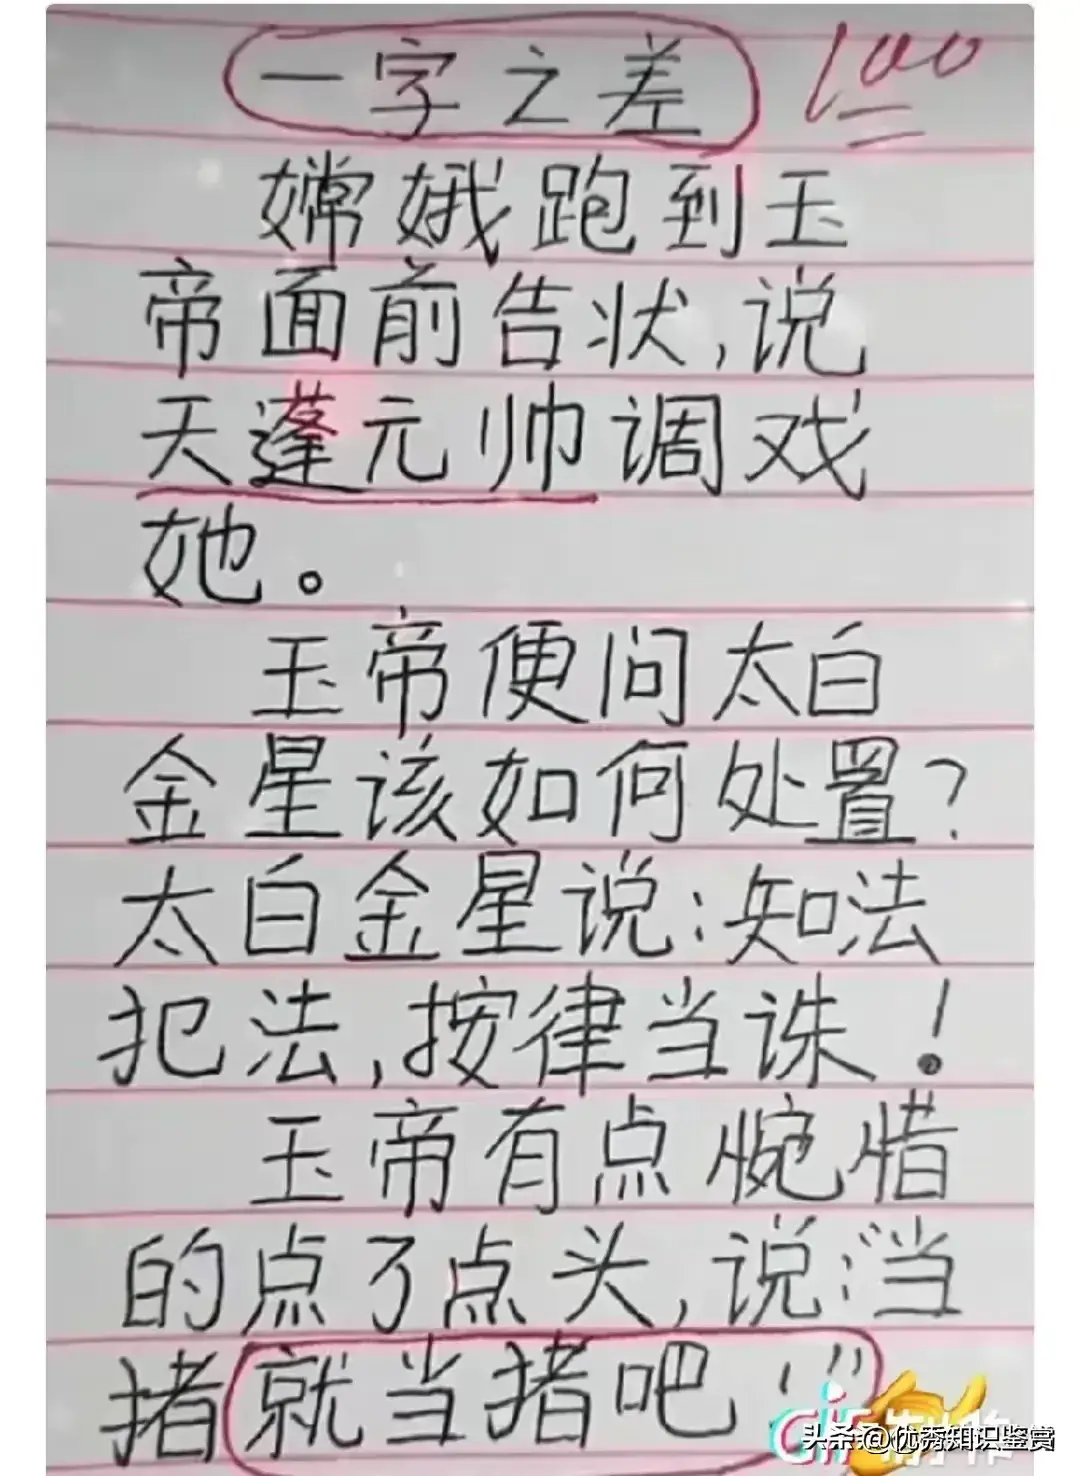 一字之差 100
嫦娥跑到玉
帝面前告状,说
天蓬元帅调戏
她。
玉帝便问太白
金星该如何处置?
太白金星说:知法
犯法,按律当诛!
玉帝有点惋惜
的点了点头,说:“当
猪就当猪吧!”
头条@优秀知识鉴赏